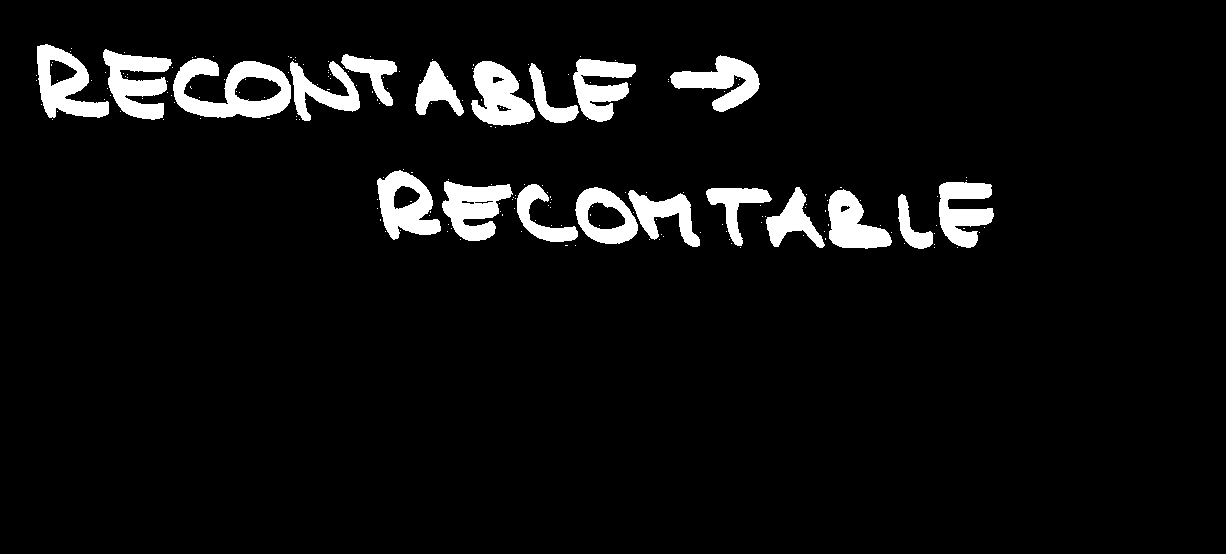 RECONTABLE →
RECOMTABLE